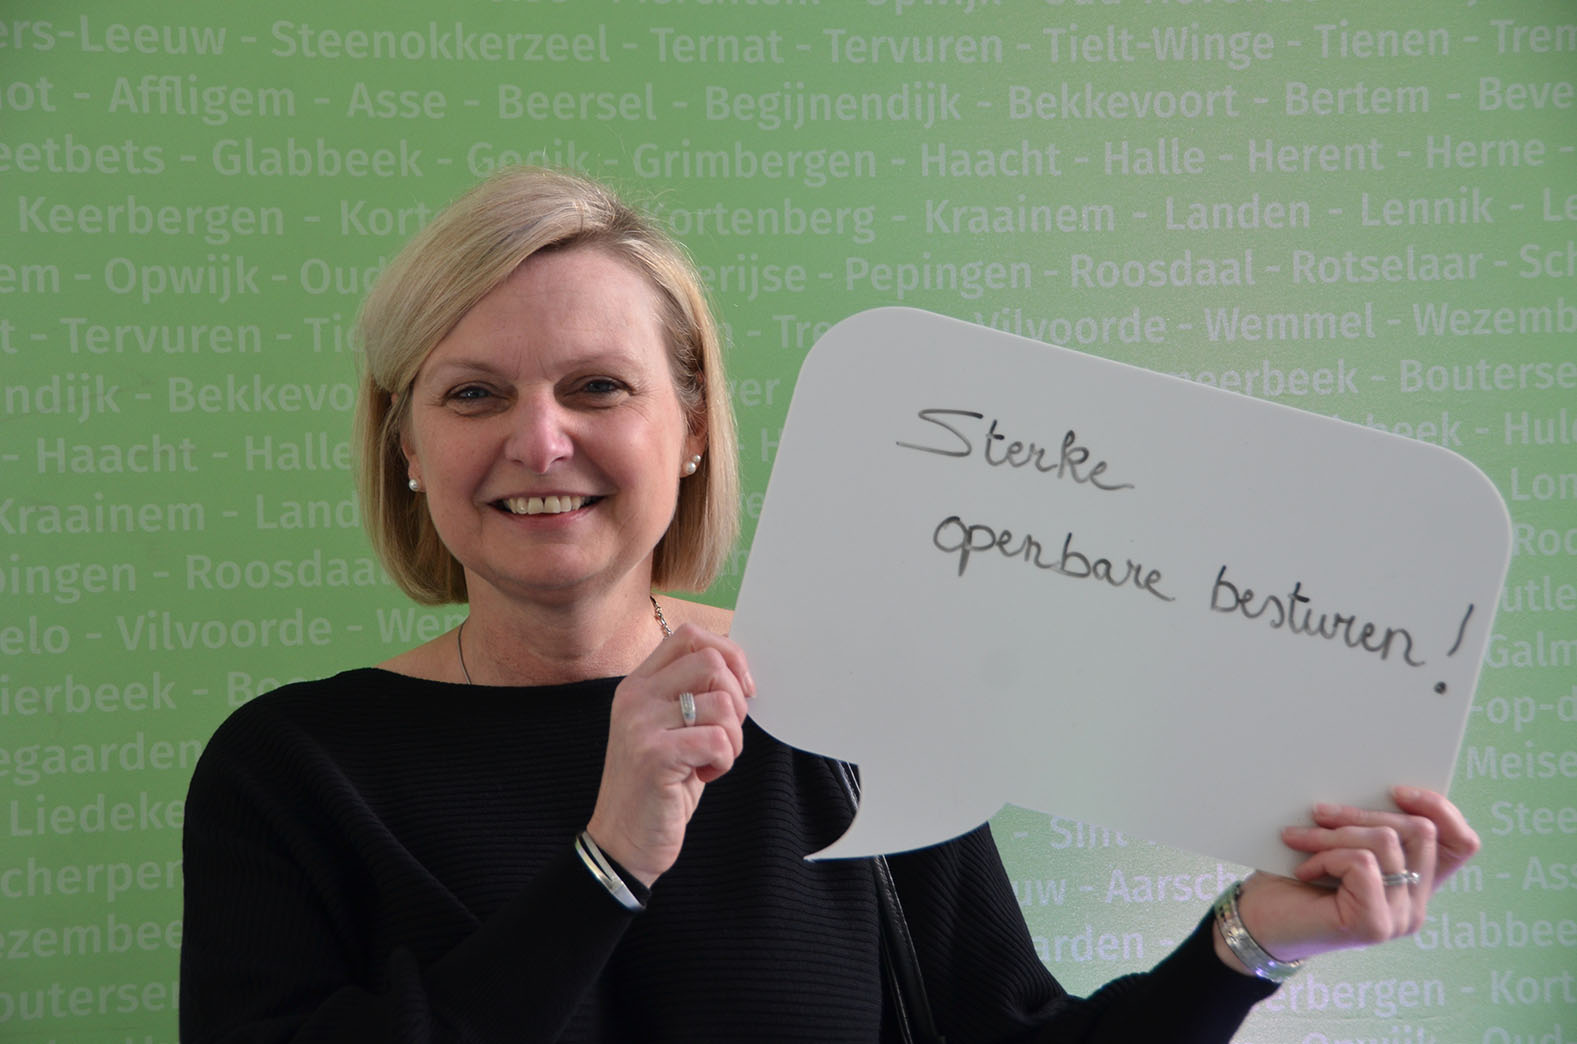 ers-Leeuw - Steenokkerzeel - Ternat - Tervuren - Tielt-Winge - Tienen - Trem
ot - Affligem - Asse - Beersel - Begijnendijk - Bekkevoort - Bertem - Beve
eetbets - Glabbeek - Gooik - Grimbergen - Haacht - Halle - Herent - Herne -
Keerbergen - Kort ortenberg - Kraainem - Landen - Lennik - Le
em - Opwijk - Oud erijse - Pepingen - Roosdaal - Rotselaar - Sch
t - Tervuren - Tie - Tre Vilvoorde - Wemmel - Wezemb
ndijk - Bekkevo ver eerbeek - Bouterse
- Haacht - Halle beek - Hul
Sterke
Kraainem - Land Lon
openbare besturen!
pingen - Roosdaa Roo
elo - Vilvoorde - Wem utle
ierbeek - Bo Galm
egaarden -op-d
Liedeke Meise
cherpen - Sint Stee
ezembee uw - Aarsch m - Ass
outersem aarden - Glabbee
erbergen - Kort
Opwijk - Oud